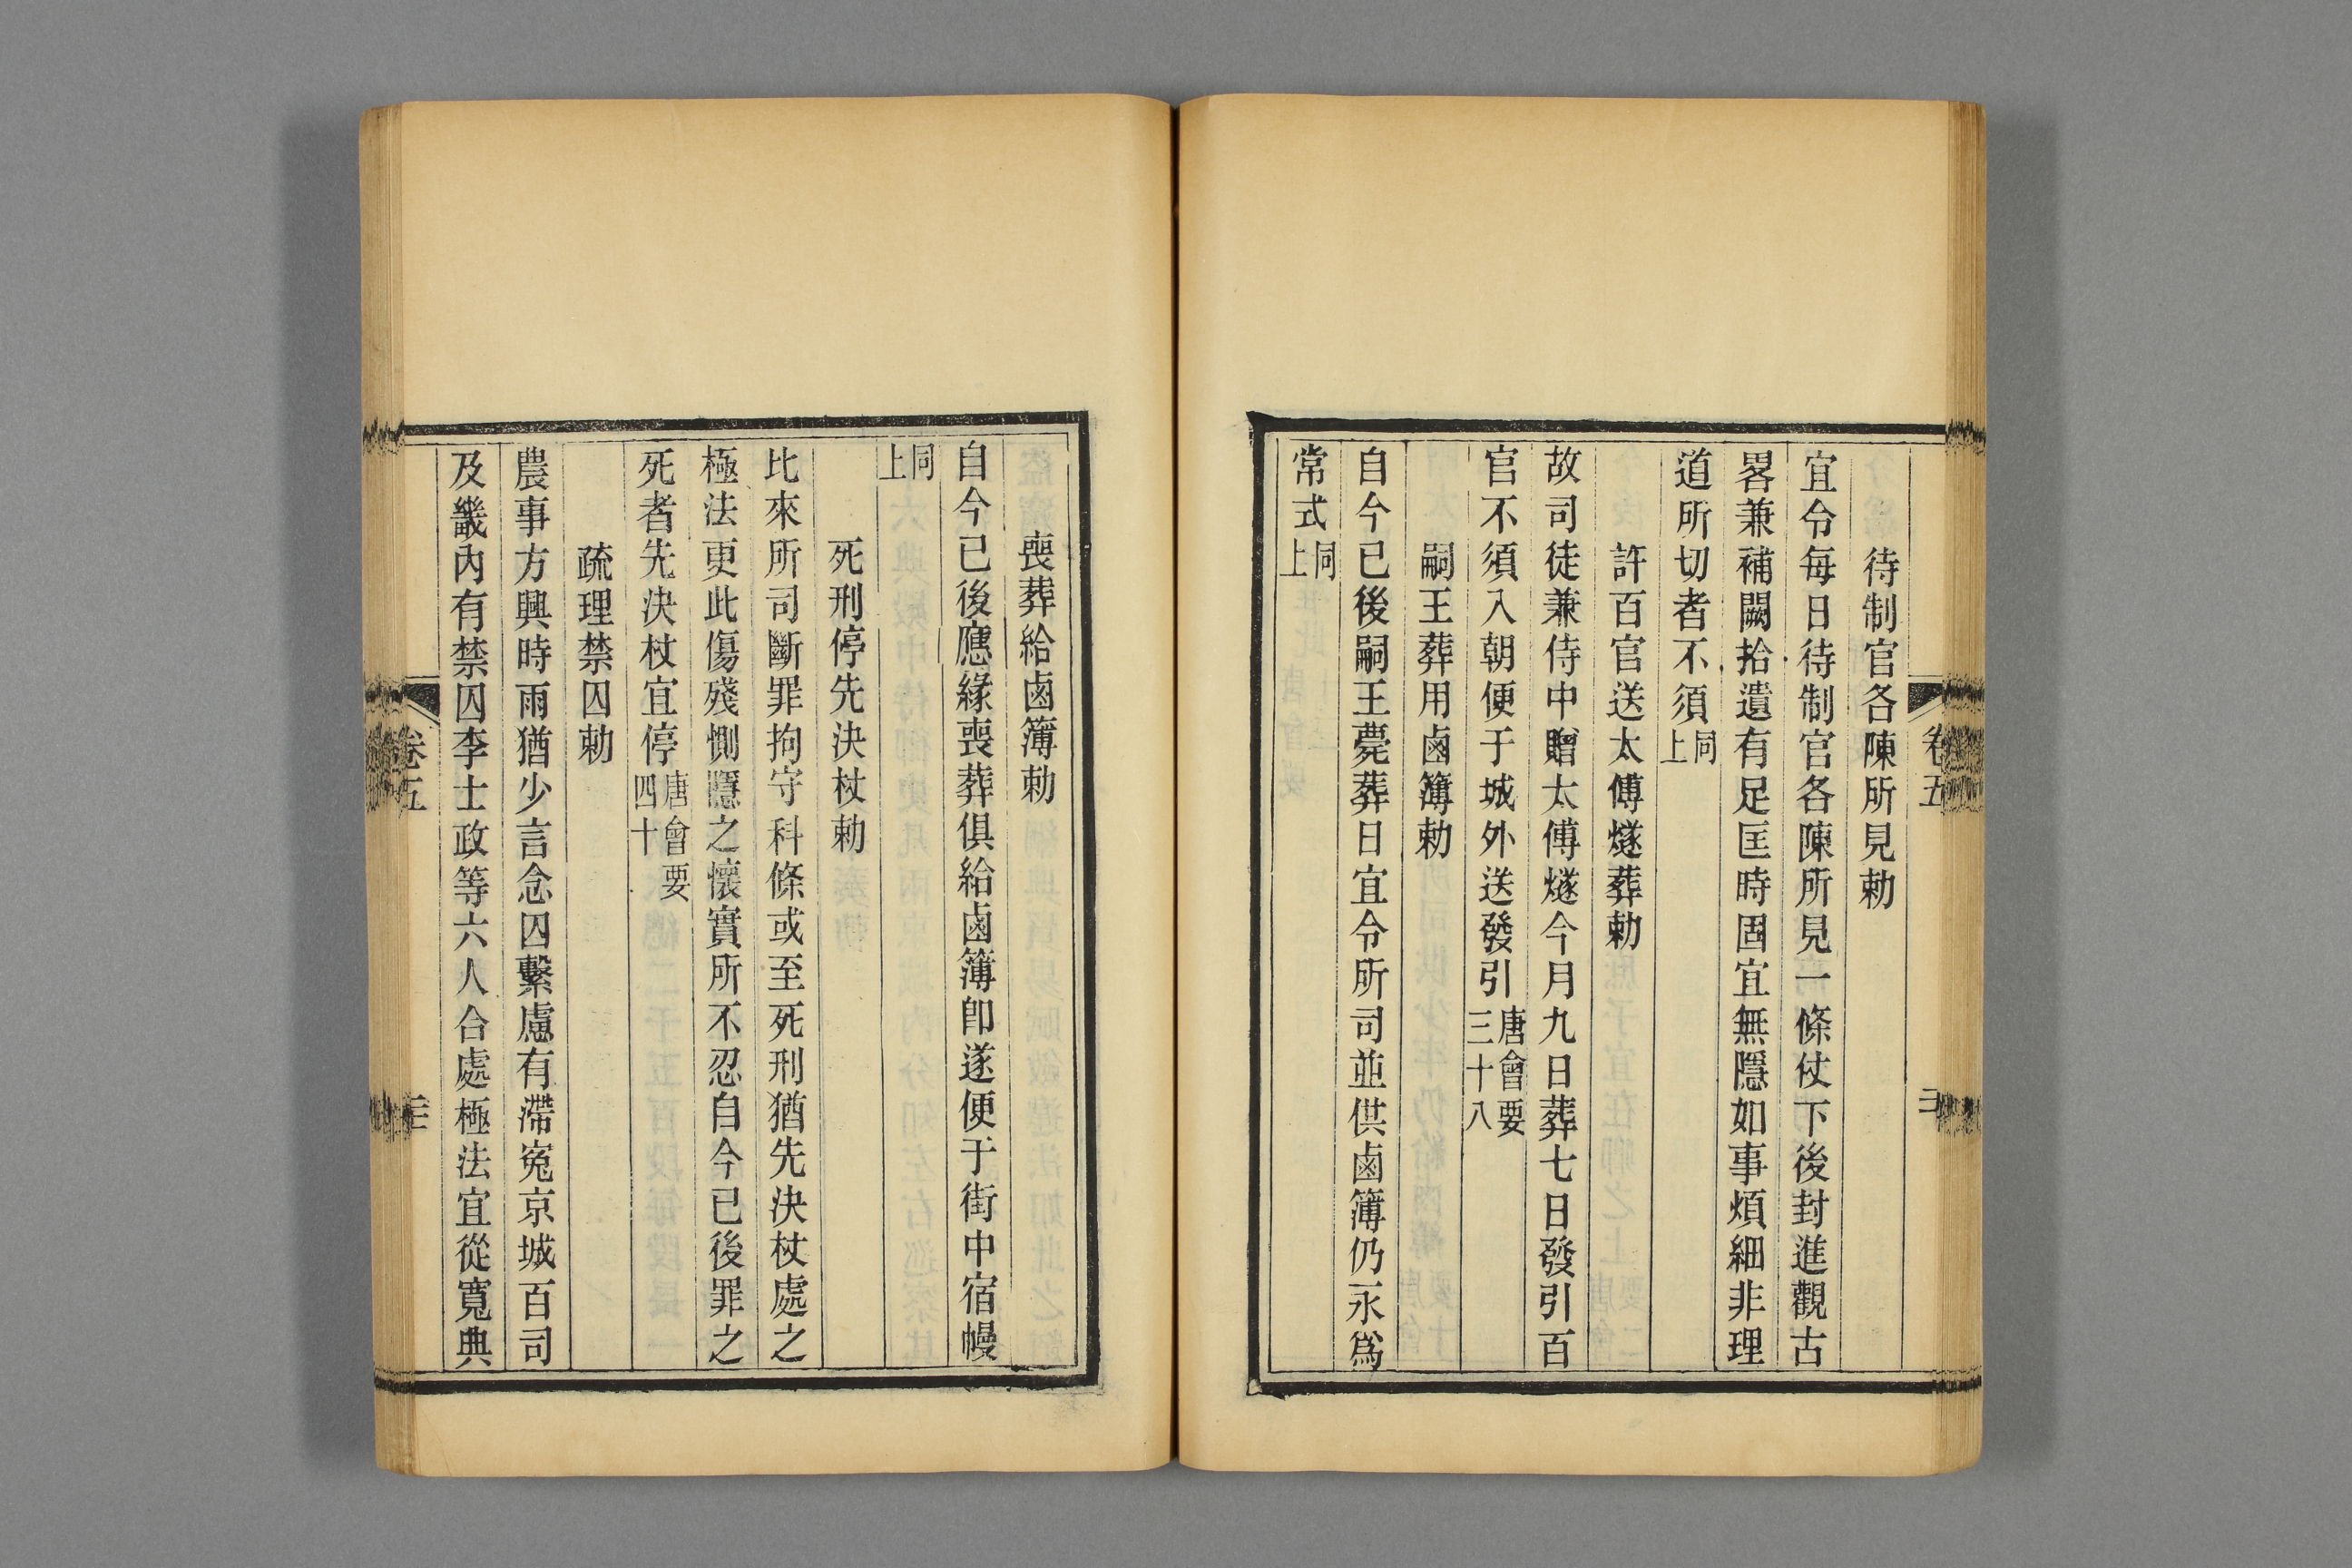 卷五
待制官各陳所見勅
宜令每日待制官各陳所見一條仗下後封進觀古
畧兼補闕拾遺有足匡時固宜無隱如事煩細非理
道所切者不須同上
許百官送太傅燧葬勅
故司徒兼侍中贈太傅燧今月九日葬七日發引百
官不須入朝便于城外送發引唐會要三十八
嗣王葬用鹵簿勅
自今已後嗣王薨葬日宜令所司並供鹵簿仍永爲
常式同上
喪葬給鹵簿勅
自今已後應緣喪葬俱給鹵簿卽遂便于街中宿幔
同上
死刑停先決杖勅
比來所司斷罪拘守科條或至死刑猶先決杖處之
極法更此傷殘惻隱之懷實所不忍自今已後罪之
死者先決杖宜停唐會要四十
疏理禁囚勅
農事方興時雨猶少言念囚繫慮有滯寃京城百司
及畿內有禁囚李士政等六人合處極法宜從寬典
卷五